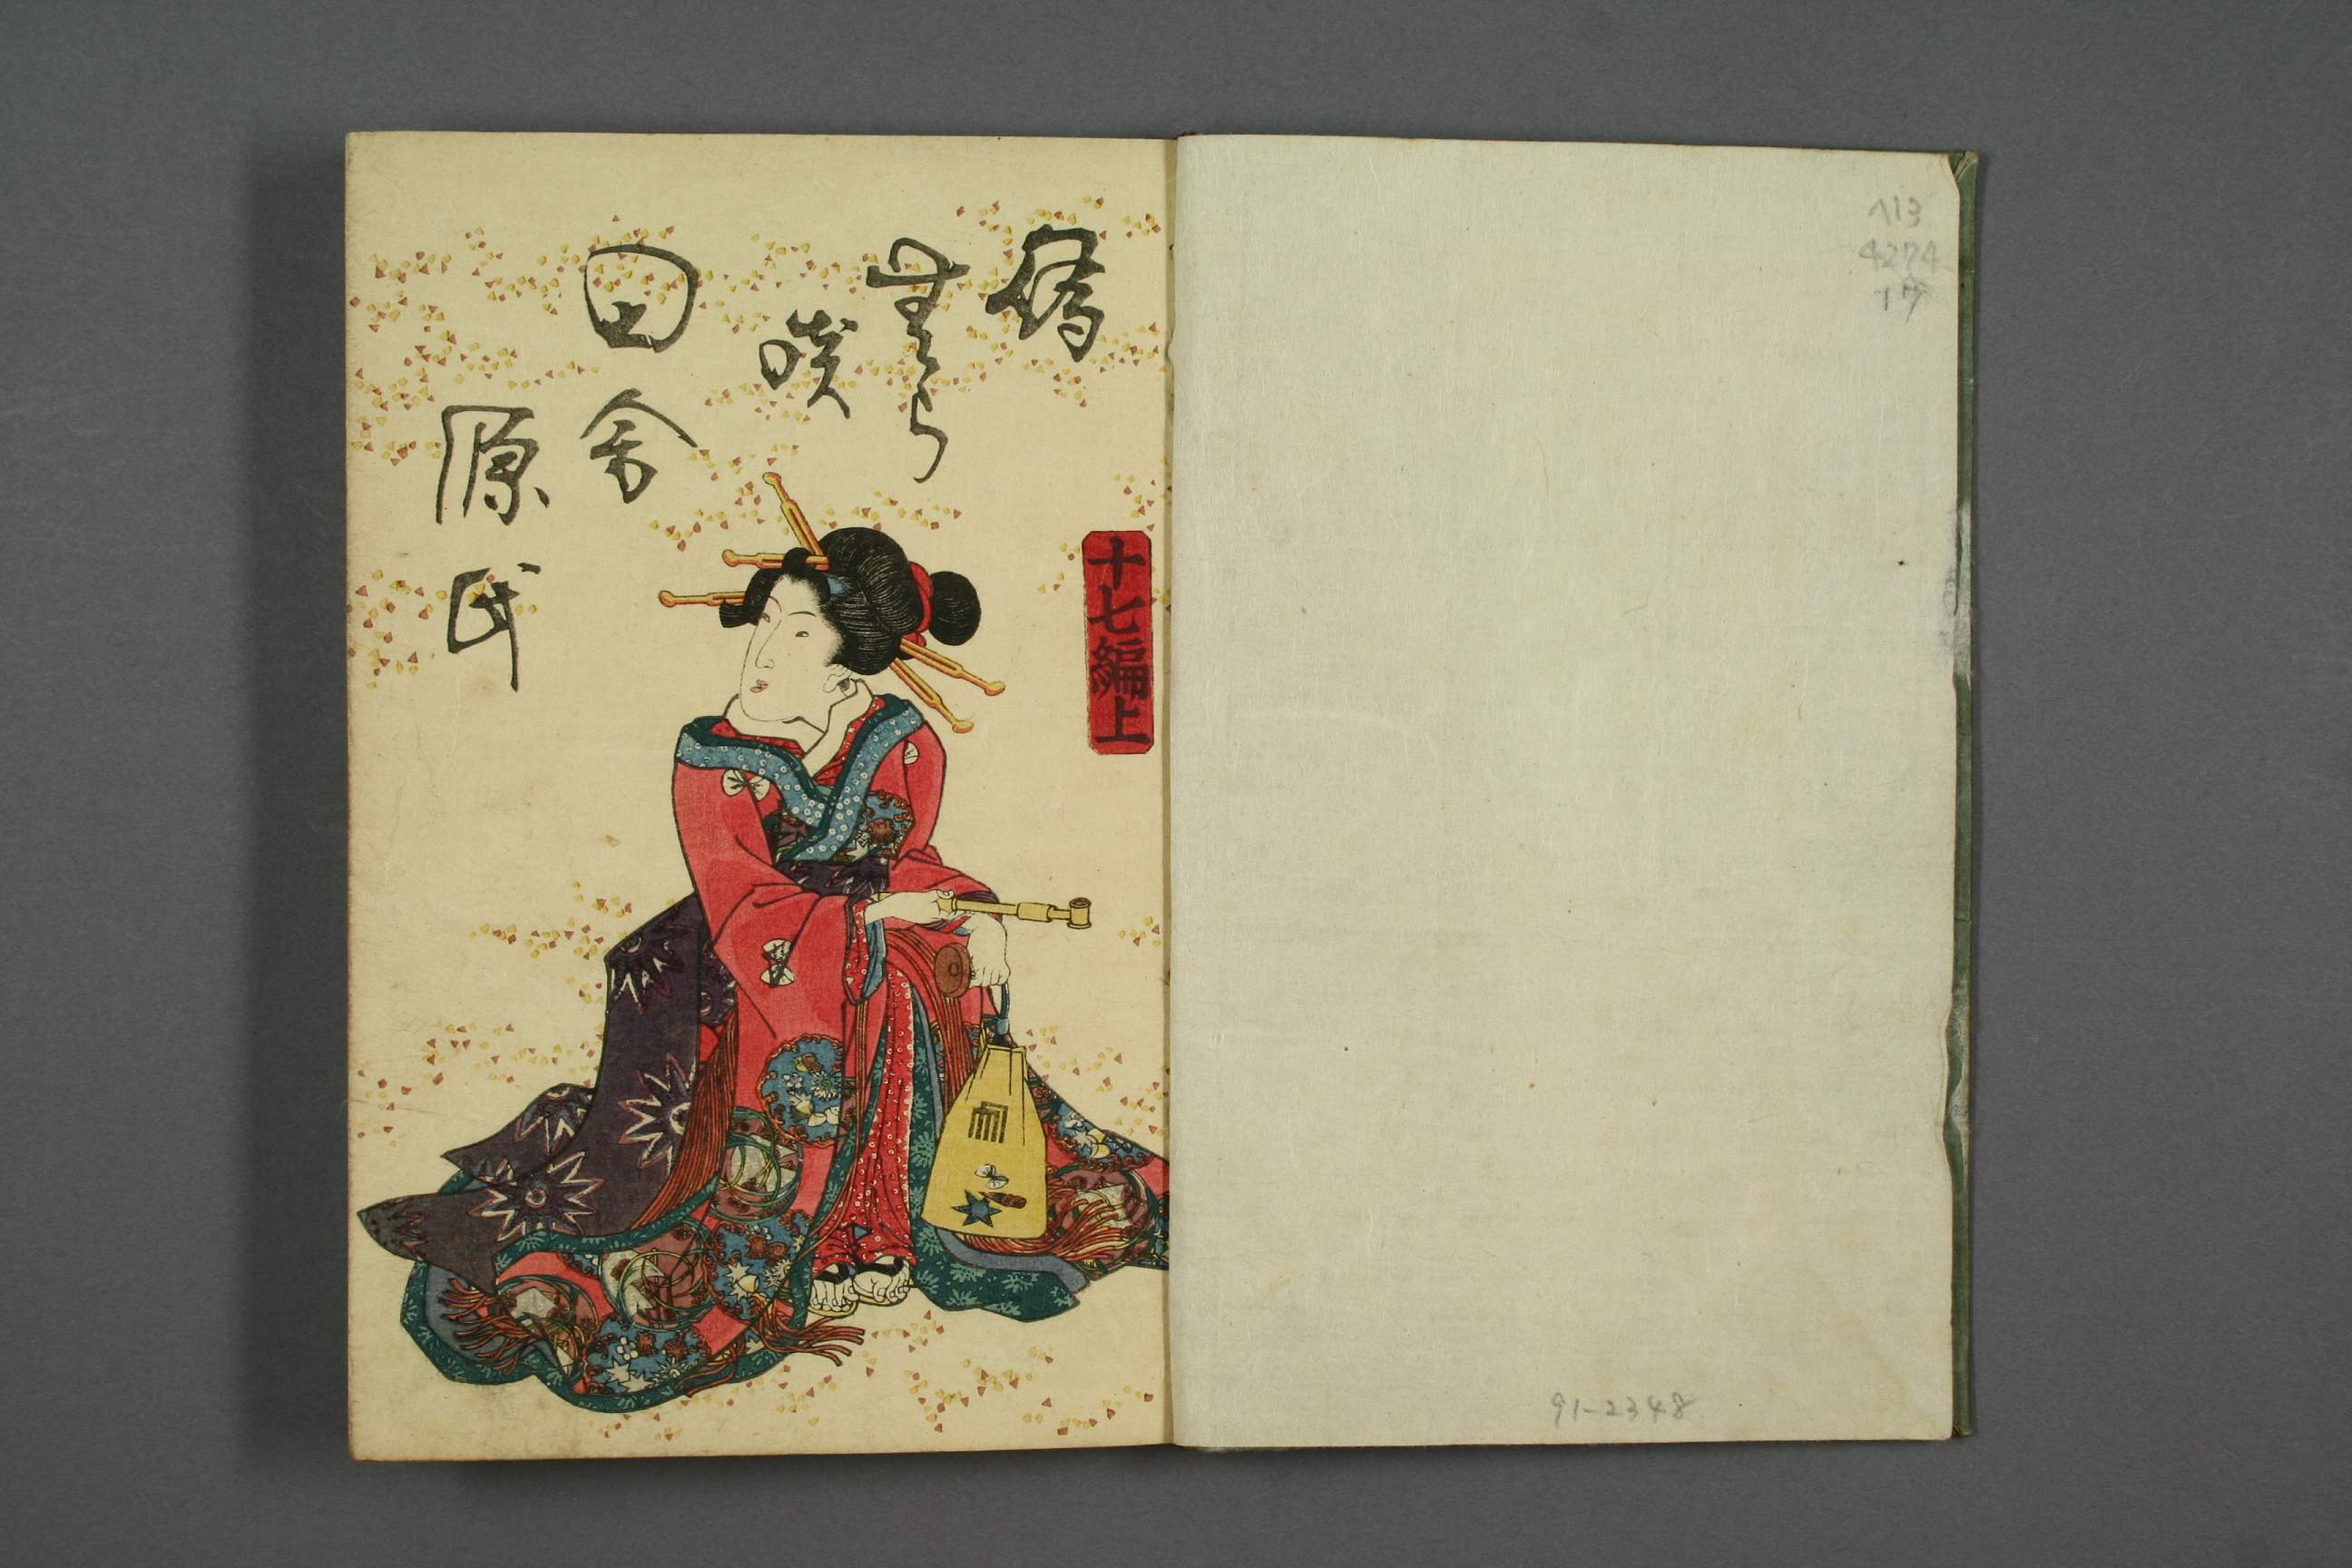 偐
むら
咲
田舎
源氏
十七編上
ヘ13
4274
17
91-2348